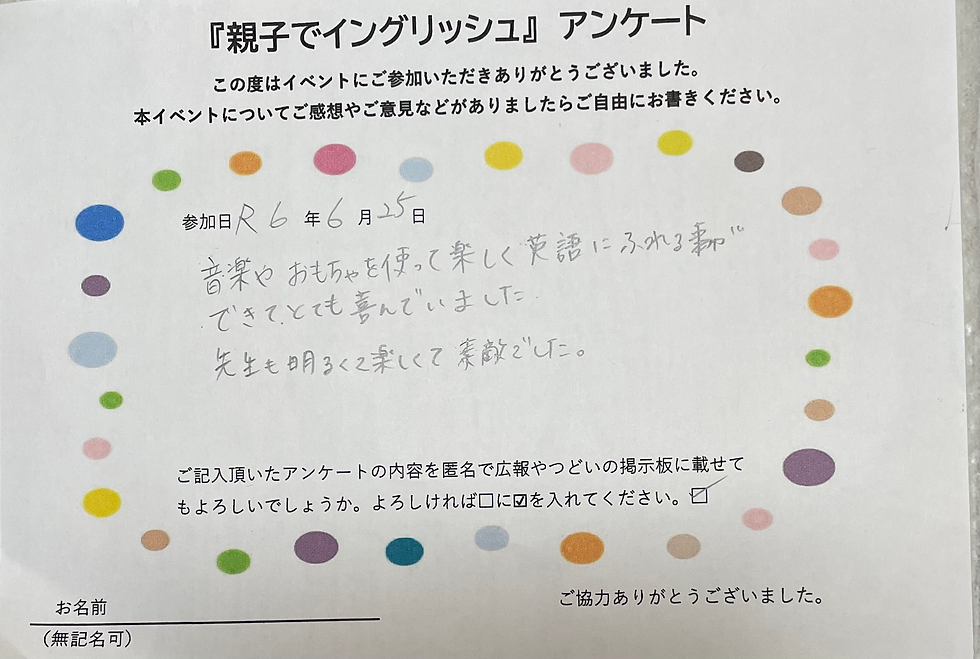 『親子でイングリッシュ』 アンケート
この度はイベントにご参加いただきありがとうございました。
本イベントについてご感想やご意見などがありましたらご自由にお書きください。
参加日 R 6 年 6 月 25 日
音楽や おもちゃを使って楽しく 英語にふれる事が
できて、とても喜んでいました。
先生も明るくて楽しくて 素敵でした。
ご記入頂いたアンケートの内容を匿名で広報やつどいの掲示板に載せて
もよろしいでしょうか。よろしければ□に☑を入れてください。☑
お名前
ご協力ありがとうございました。
（無記名可）